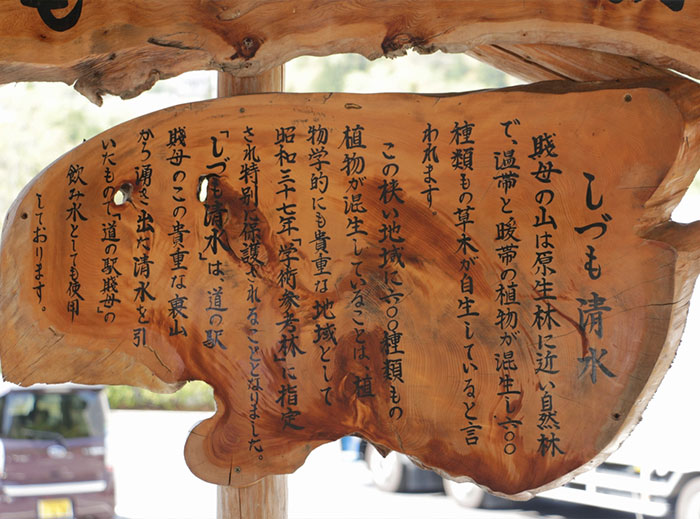 しづも清水
賤母の山は原生林に近い自然林
で、温帯と暖帯の植物が混生し六〇〇
種類もの草木が自生していると言
われます
この狭い地域に六〇〇種類もの
植物が混生していることは、植
物学的にも貴重な地域として
昭和三十七年「学術参考林」に指定
され特別に保護されることとなりました。
「しづも清水」は、道の駅
賤母のこの貴重な裏山
から湧き出た清水を引
いたもので「道の駅賤母」の
飲み水としても使用
しております。
も